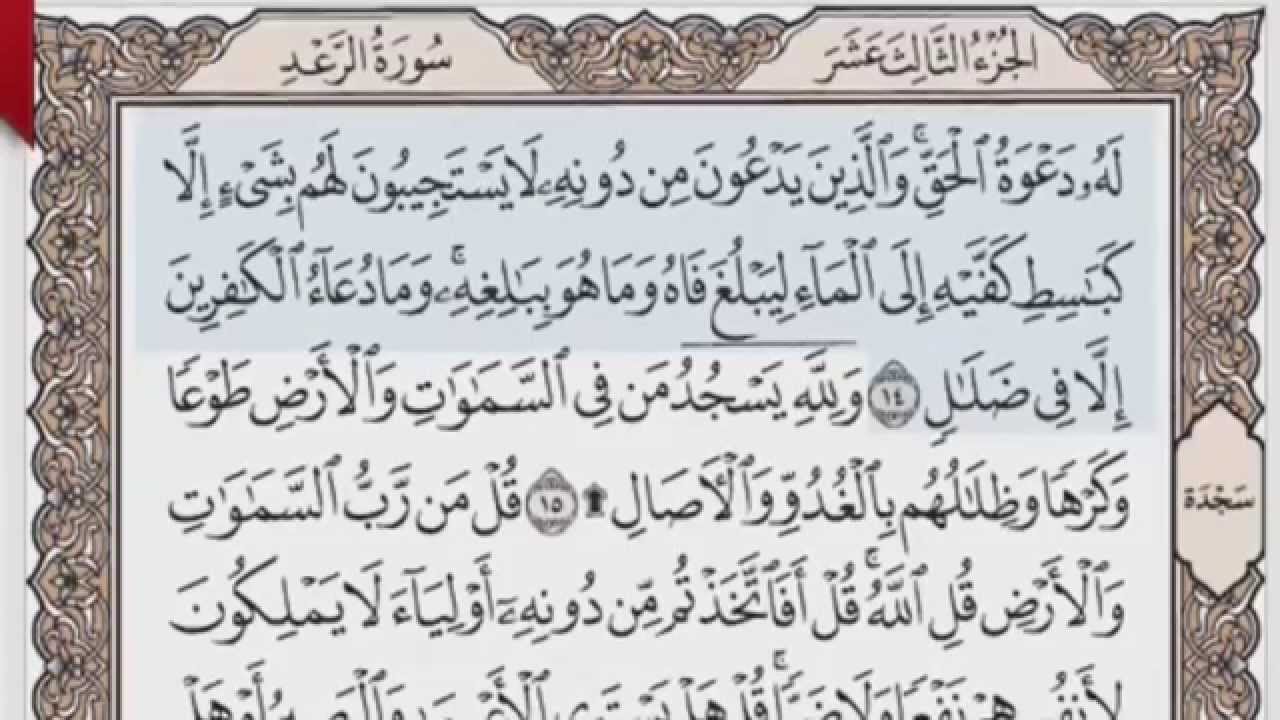 الجُزْءُ الثَّالِثَ عَشَرَ
سُورَةُ الرَّعْدِ
لَهُۥ دَعْوَةُ ٱلْحَقِّۚ وَٱلَّذِينَ يَدْعُونَ مِن دُونِهِۦ لَا يَسْتَجِيبُونَ لَهُم بِشَىْءٍ إِلَّا
كَبَـٰسِطِ كَفَّيْهِ إِلَى ٱلْمَآءِ لِيَبْلُغَ فَاهُ وَمَا هُوَ بِبَـٰلِغِهِۦۚ وَمَا دُعَآءُ ٱلْكَـٰفِرِينَ
إِلَّا فِى ضَلَـٰلٍ ١٤ وَلِلَّهِ يَسْجُدُ مَن فِى ٱلسَّمَـٰوَٰتِ وَٱلْأَرْضِ طَوْعًا
وَكَرْهًا وَظِلَـٰلُهُم بِٱلْغُدُوِّ وَٱلْـَٔاصَالِ ۩ ١٥ قُلْ مَن رَّبُّ ٱلسَّمَـٰوَٰتِ
سَجْدَة
وَٱلْأَرْضِ قُلِ ٱللَّهُۚ قُلْ أَفَٱتَّخَذْتُم مِّن دُونِهِۦٓ أَوْلِيَآءَ لَا يَمْلِكُونَ
لِأَنفُسِهِمْ نَفْعًا وَلَا ضَرًّاۚ قُلْ هَلْ يَسْتَوِى ٱلْأَعْمَىٰ وَٱلْبَصِيرُ أَوْ هَلْ